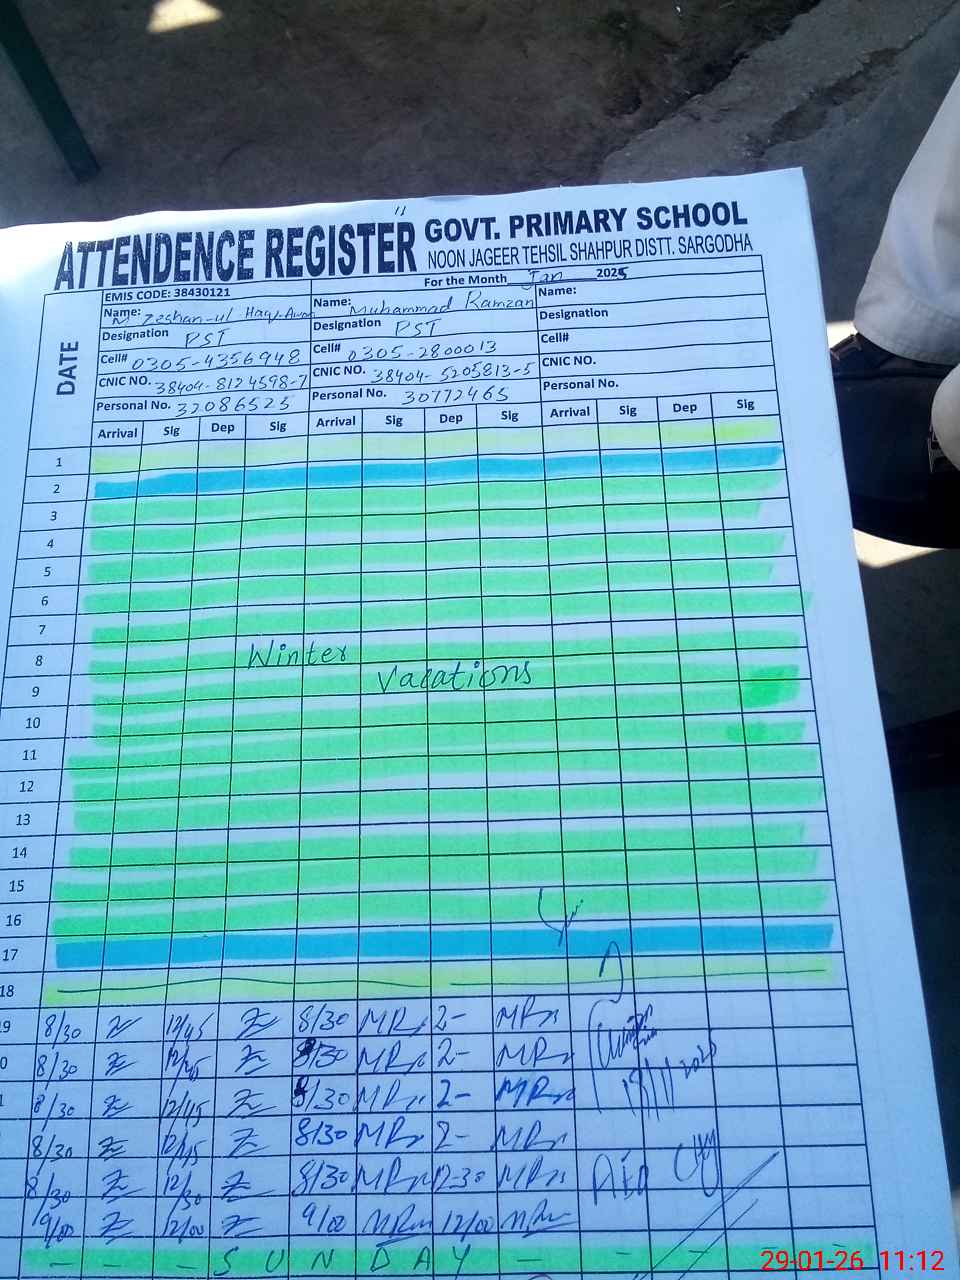 ATTENDENCE REGISTER
GOVT. PRIMARY SCHOOL
NOON JAGEER TEHSIL SHAHPUR DISTT. SARGODHA
For the Month Jan 2025
DATE
EMIS CODE: 38430121
Name: M. Zeshan-ul Haq Awan Name: Muhammad Ramzan Name:
Designation PST Designation PST Designation
Cell# 0305-4356948 Cell# 0305-2800013 Cell#
CNIC NO. 38404-8124598-7 CNIC NO. 38404-5205813-5 CNIC NO.
Personal No. 32086525 Personal No. 30772465 Personal No.
Arrival Sig Dep Sig Arrival Sig Dep Sig Arrival Sig Dep Sig
1
2
3
4
5
6
7
8 Winter
9 Vacations
10
11
12
13
14
15
16
17
18
9 8/30 12/45 8/30 MR 2- MR
0 8/30 12/45 8/30 MR 2- MR
1 8/30 12/45 8/30 MR 2- MR
8/30 12/45 8/30 MR 2- MR
8/30 12/30 8/30 MR 12-30 MR
9/00 12/00 9/00 MR 12/00 MR
- - - S U N D A Y - - - -
29-01-26 11:12